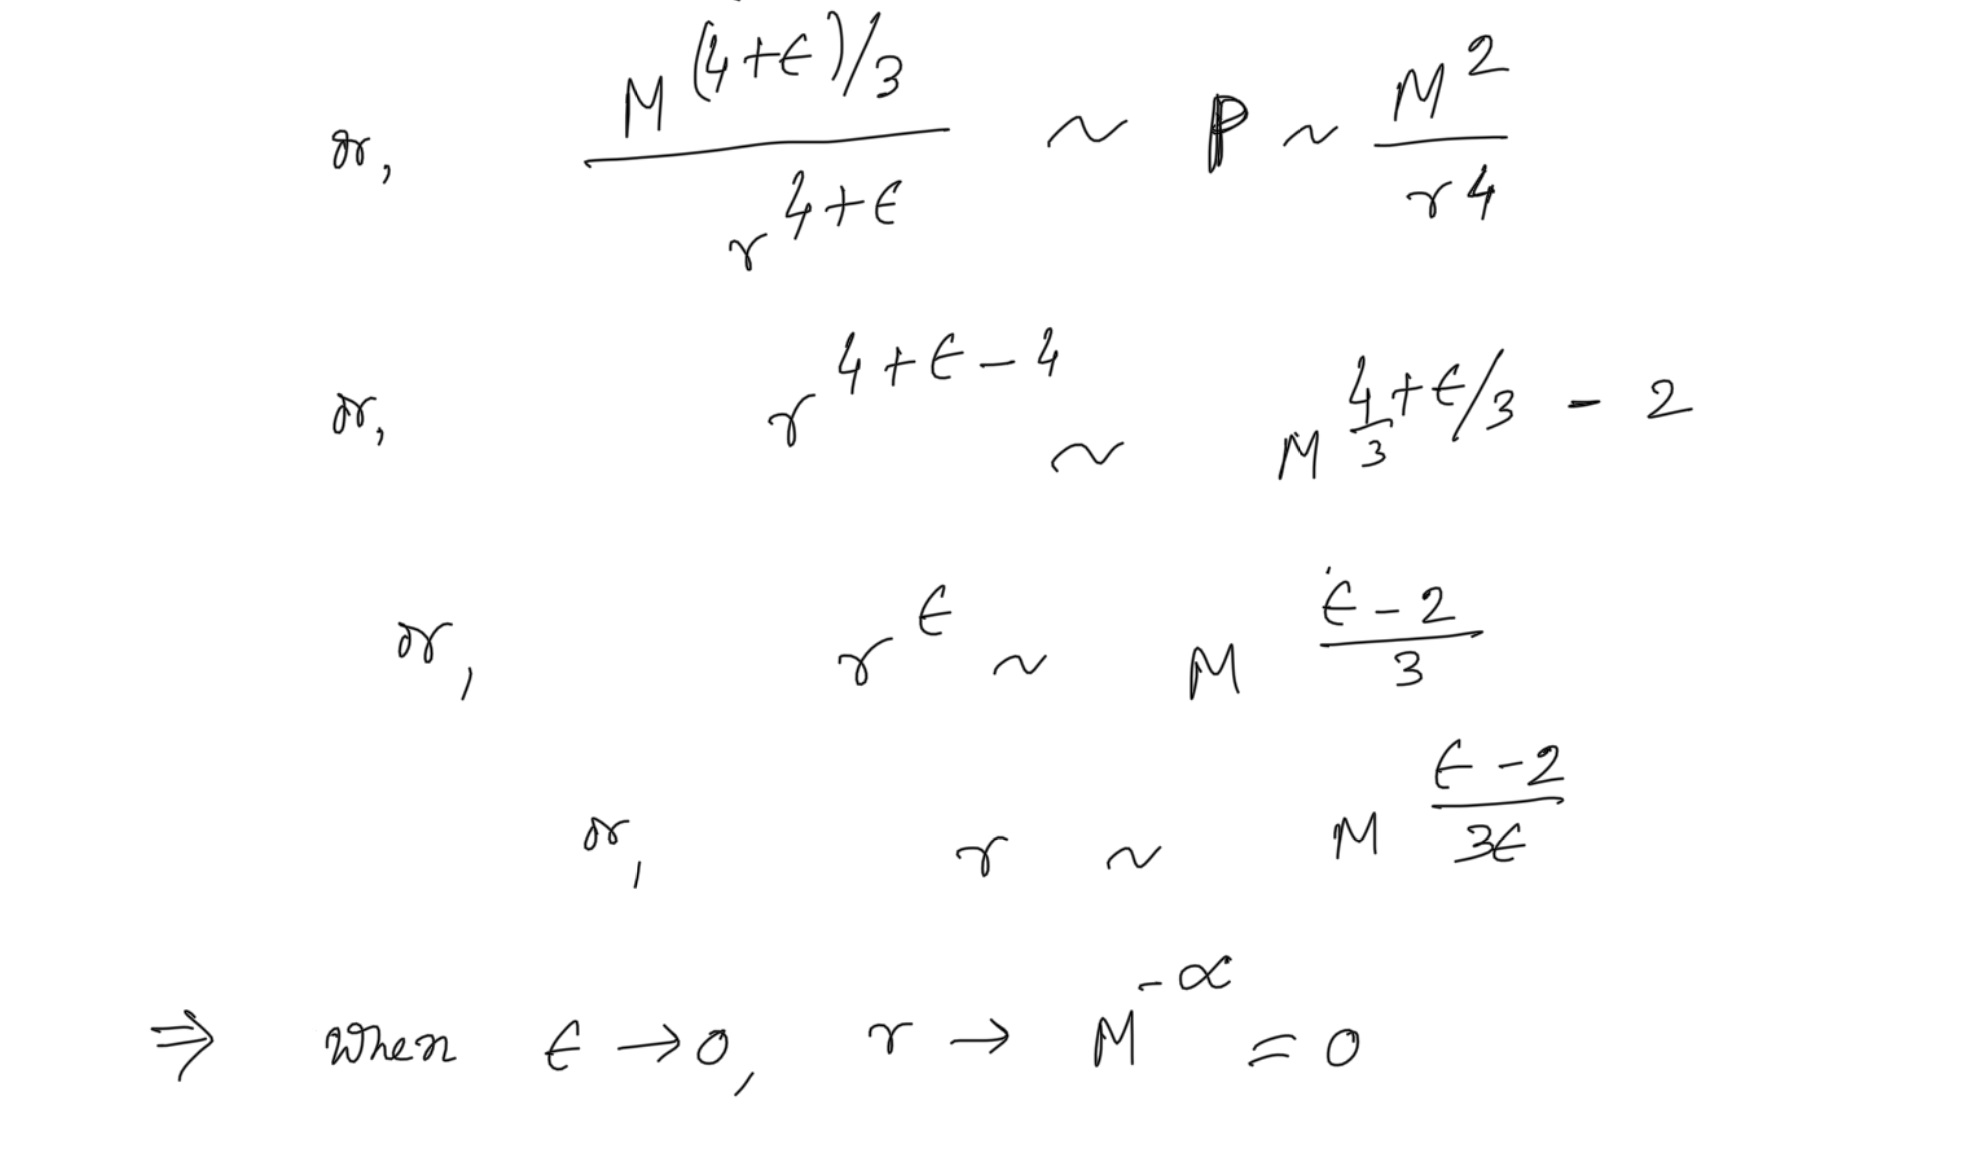 or, M^{(4+ϵ)/3} / r^{4+ϵ} ~ P ~ M^2 / r^4
or, r^{4+ϵ-4} ~ M^{4/3+ϵ/3 - 2}
or, r^ϵ ~ M^{(ϵ-2)/3}
or, r ~ M^{(ϵ-2)/3ϵ}
⇒ when ϵ → 0, r → M^{-∝} = 0